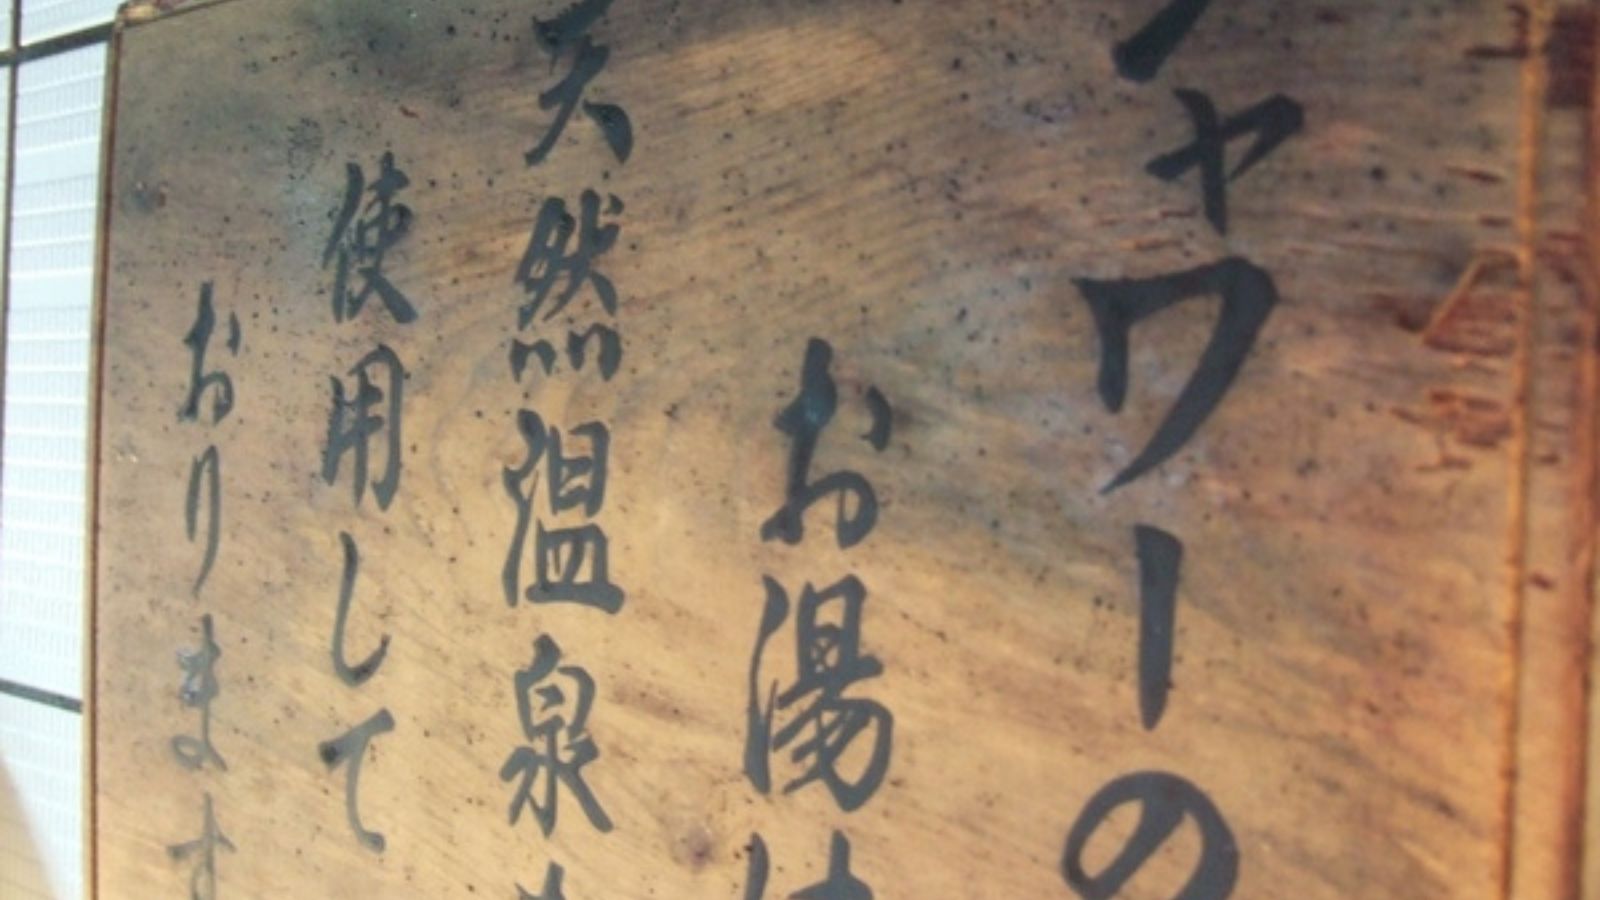 シャワーの
お湯は
天然温泉を
使用して
おります